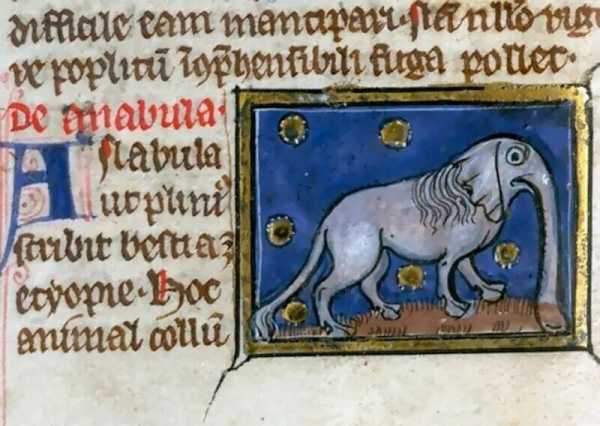 difficile eam mancipari. illo
re poplitū īꝯp̄hensibili fuga pollet.
De anabula.
Aslabula
ut plini⁹
scribit bestia ē
etyopie. Hoc
animal collū